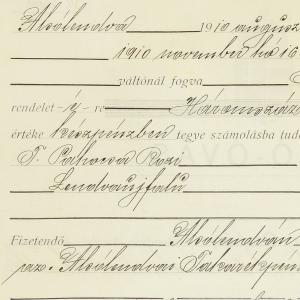 Alsólendva 1910 augusz
1910 november hó 16
váltónál fogva
rendelet -é- re Háromszáz
értéke készpénzben tegye számolásba tud
T. Pahorsa Rozi
Lendvaujfalu
Fizetendő Alsólendván
pr. Alsólendvai Takarékpén